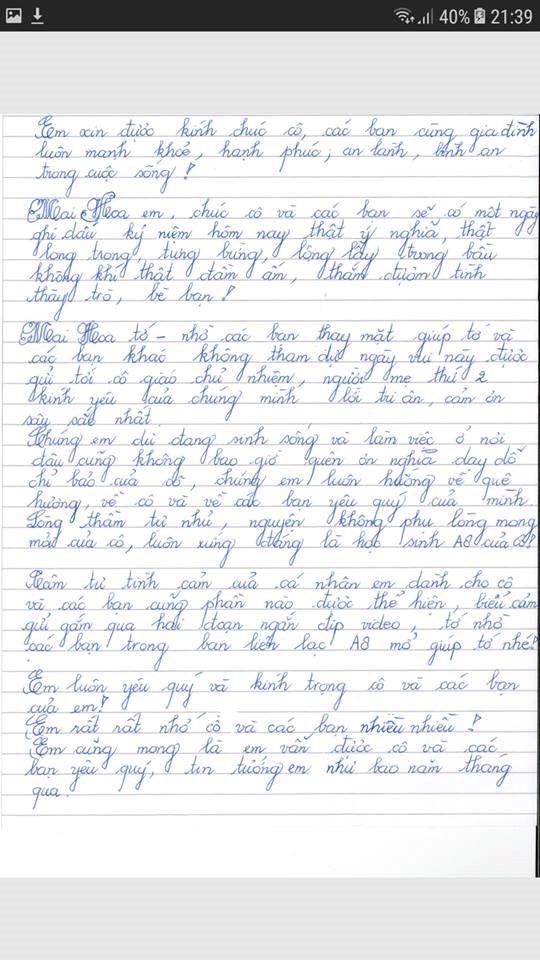 40% 21:39
Em xin được kính chúc cô, các bạn cùng gia đình
luôn mạnh khoẻ, hạnh phúc; an lành, bình an
trong cuộc sống!
Mai Hoa em, chúc cô và các bạn sẽ có một ngày
ghi dấu kỷ niệm hôm nay thật ý nghĩa, thật
long trọng, tưng bừng, lộng lẫy trong bầu
không khí thật đầm ấm, thắm đượm tình
thầy trò, bè bạn!
Mai Hoa tớ - nhờ các bạn thay mặt giúp tớ và
các bạn khác không tham dự ngày vui này được
gửi tới cô giáo chủ nhiệm, người mẹ thứ 2
kính yêu của chúng mình lời tri ân, cảm ơn
sâu sắc nhất.
Chúng em dù đang sinh sống và làm việc ở nơi
đâu cũng không bao giờ quên ơn nghĩa dạy dỗ
chỉ bảo của cô, chúng em luôn hướng về quê
hương, về cô và về các bạn yêu quý của mình.
Lòng thầm tự nhủ, nguyện không phụ lòng mong
mỏi của cô, luôn xứng đáng là học sinh A8 của cô!
Tâm tư tình cảm của cá nhân em dành cho cô
và các bạn cũng phần nào được thể hiện, biểu cảm
gửi gắm qua hai đoạn ngắn clip video, tớ nhờ
các bạn trong ban liên lạc A8 mở giúp tớ nhé!
Em luôn yêu quý và kính trọng cô và các bạn
của em!
Em rất rất nhớ cô và các bạn nhiều nhiều!
Em cũng mong là em vẫn được cô và các
bạn yêu quý, tin tưởng em như bao năm tháng
qua.